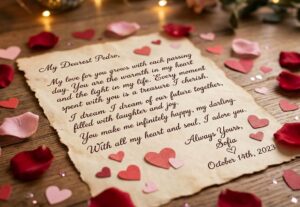 My Dearest Pedro,
My love for you grows with each passing
day. You are the warmth in my heart
and the light in my life. Every moment
spent with you is a treasure I cherish.
I dream, I dream of our future together,
filled with laughter and joy.
You make me infinitely happy, my darling.
With all my heart and soul, I adore you.
Always Yours,
Sofia
October 14th, 2023